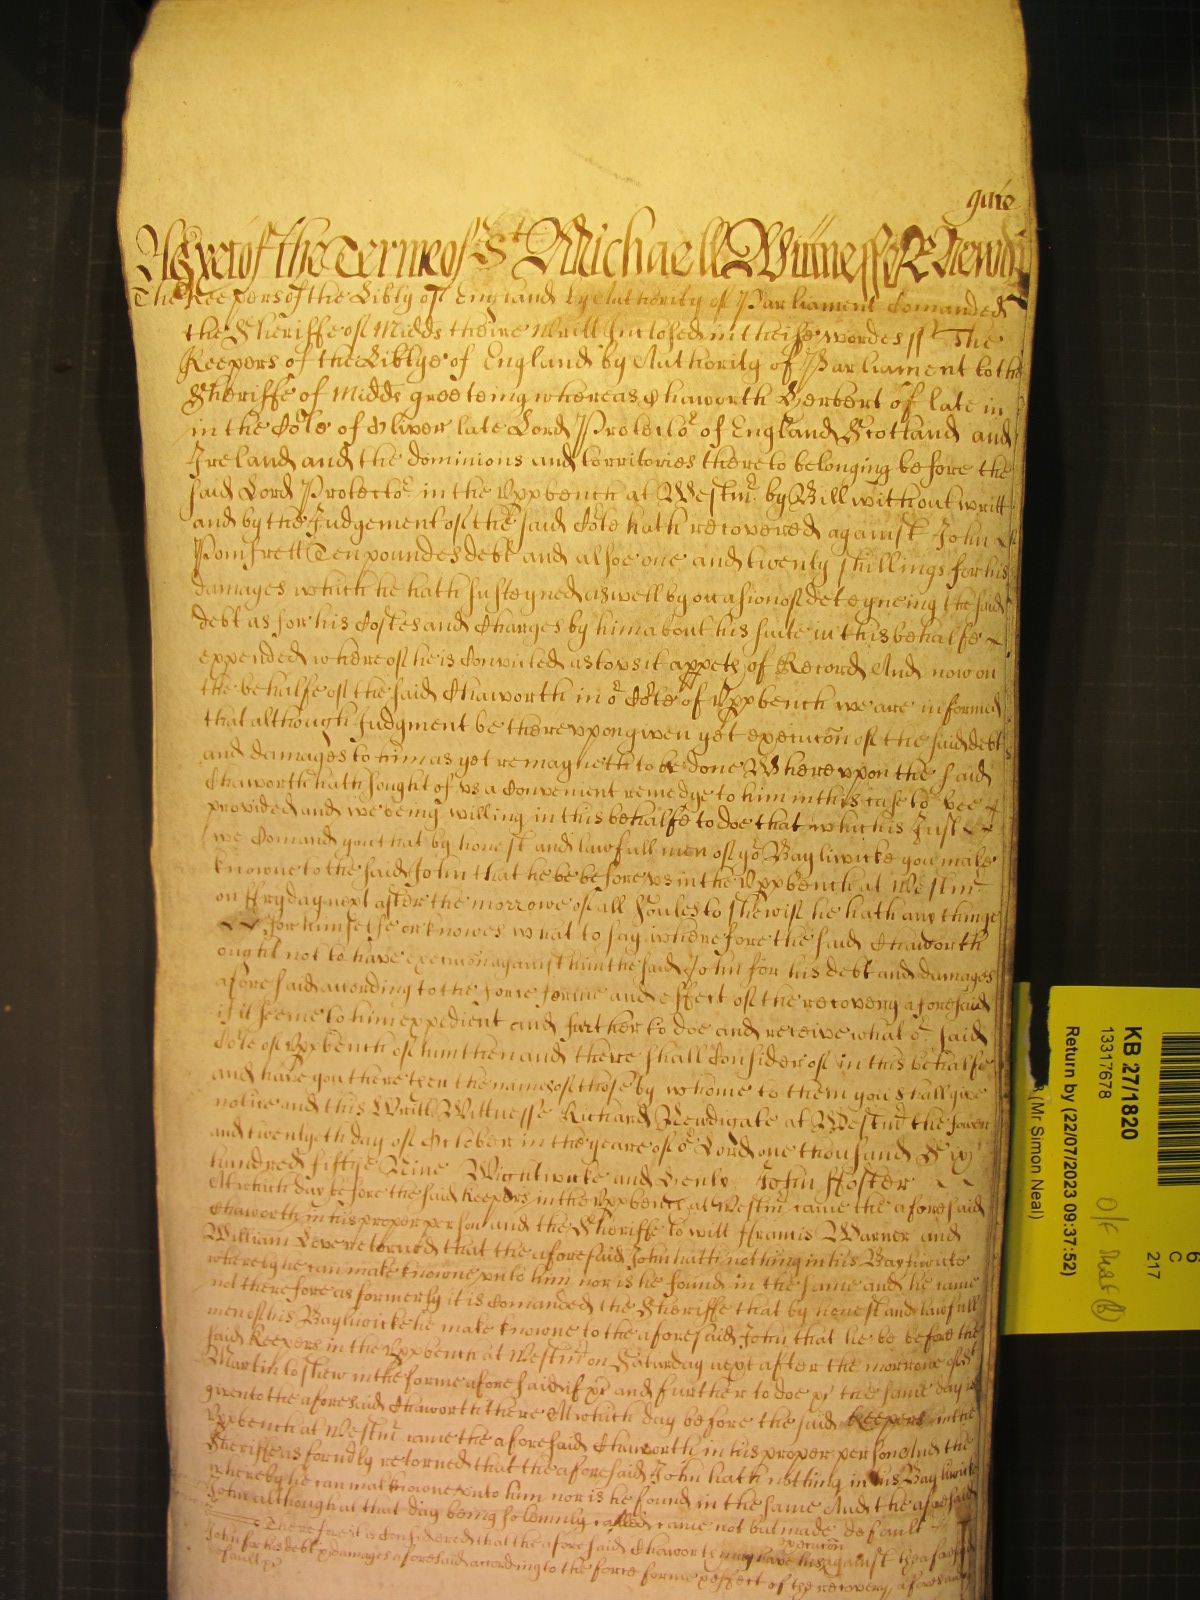 gate
Yet of the Terme of St Michaell Wittnesse R Newdi
The Keepers of the Libty of England by Authority of Parliament Comanded
the Sheriffe of Midds theire Writt Inclosed in theise wordes ss The
Keepers of the Libtye of England by Authority of Parliament to the
Sheriffe of Midds greeteing whereas Chaworth Herbert of late in
in the Cote of Oliver late Lord Protector of England Scotland and
Ireland and the dominions and territories thereto belonging before the
said Lord Protector in the Uppbench at Westmr by Bill without writt
and by the Judgement of the said Cote hath recovered against John
Pomfrett Ten poundes debt and alsoe one and twenty shillings for his
damages which he hath susteyned aswell by occasion of deteyneing the said
debt as for his Costes and Charges by him about his suite in this behalfe
expended whereof he is Convicted as to us it appeth of Record And now on
the behalfe of the said Chaworth in or Cote of Uppbench we are informed
that although Judgment be thereuppon given yet execucon of the said debt
and damages to him as yet remayneth to be done Whereuppon the said
Chaworth hath sought of us a Convenient remedye to him in this case to bee
provided and we being willing in this behalfe to doe that which is Just
we Comand you that by honest and lawfull men of yor Bayliwicke you make
knowne to the said John that he be before us in the Uppbench at Westmr
on ffryday next after the morrowe of all Soules to shew if he hath any thinge
for himselfe or knowes what to say wherefore the said Chaworth
ought not to have execucon against him the said John for his debt and damages
aforesaid according to the force forme and effect of the recovery aforesaid
if it seeme to him expedient and further to doe and receive what or said
Cote of Uppbench of him then and there shall Consider of in this behalfe
and have you there then the names of those by whome to them you shall give
notice and this Writt Wittnesse Richard Newdigate at Westmr the fower
and twentyeth day of October in the yeare of or Lord one thousand Six
hundred fiftye Nine Wightwicke and Henly John ffoster
At which day before the said Keepers in the Uppbench at Westmr came the aforesaid
Chaworth in his proper person and the Sheriffe to witt ffrancis Warner and
William Love retorned that the aforesaid John hath nothing in his Bayliwicke
whereby he can make knowne unto him nor is he found in the same and he came
not therefore as formerly it is Comanded the Sheriffe that by honest and lawfull
men of his Bayliwicke he make knowne to the aforesaid John that he be before the
said Keepers in the Uppbench at Westmr on Saturday next after the morrowe of St
Martin to shew in the forme aforesaid if &c and further to doe &c the same day is
given to the aforesaid Chaworth there At which day before the said Keepers in the
Uppbench at Westmr came the aforesaid Chaworth in his proper person And the
Sheriffe as formerly retorned that the aforesaid John hath nothing in his Bayliwicke
whereby he can make knowne unto him nor is he found in the same And the aforesaid
John although at that day being solemnly called came not but made default
execucon
Therefore it is Considered that the aforesaid Chaworth may have his against the aforesaid
John for his debt & damages aforesaid according to the force forme & effect of the recovery aforesaid
default &c
KB 27/1820
13317678
Return by (22/07/2023 09:37:52)
(Mr Simon Neal)
6
C
217